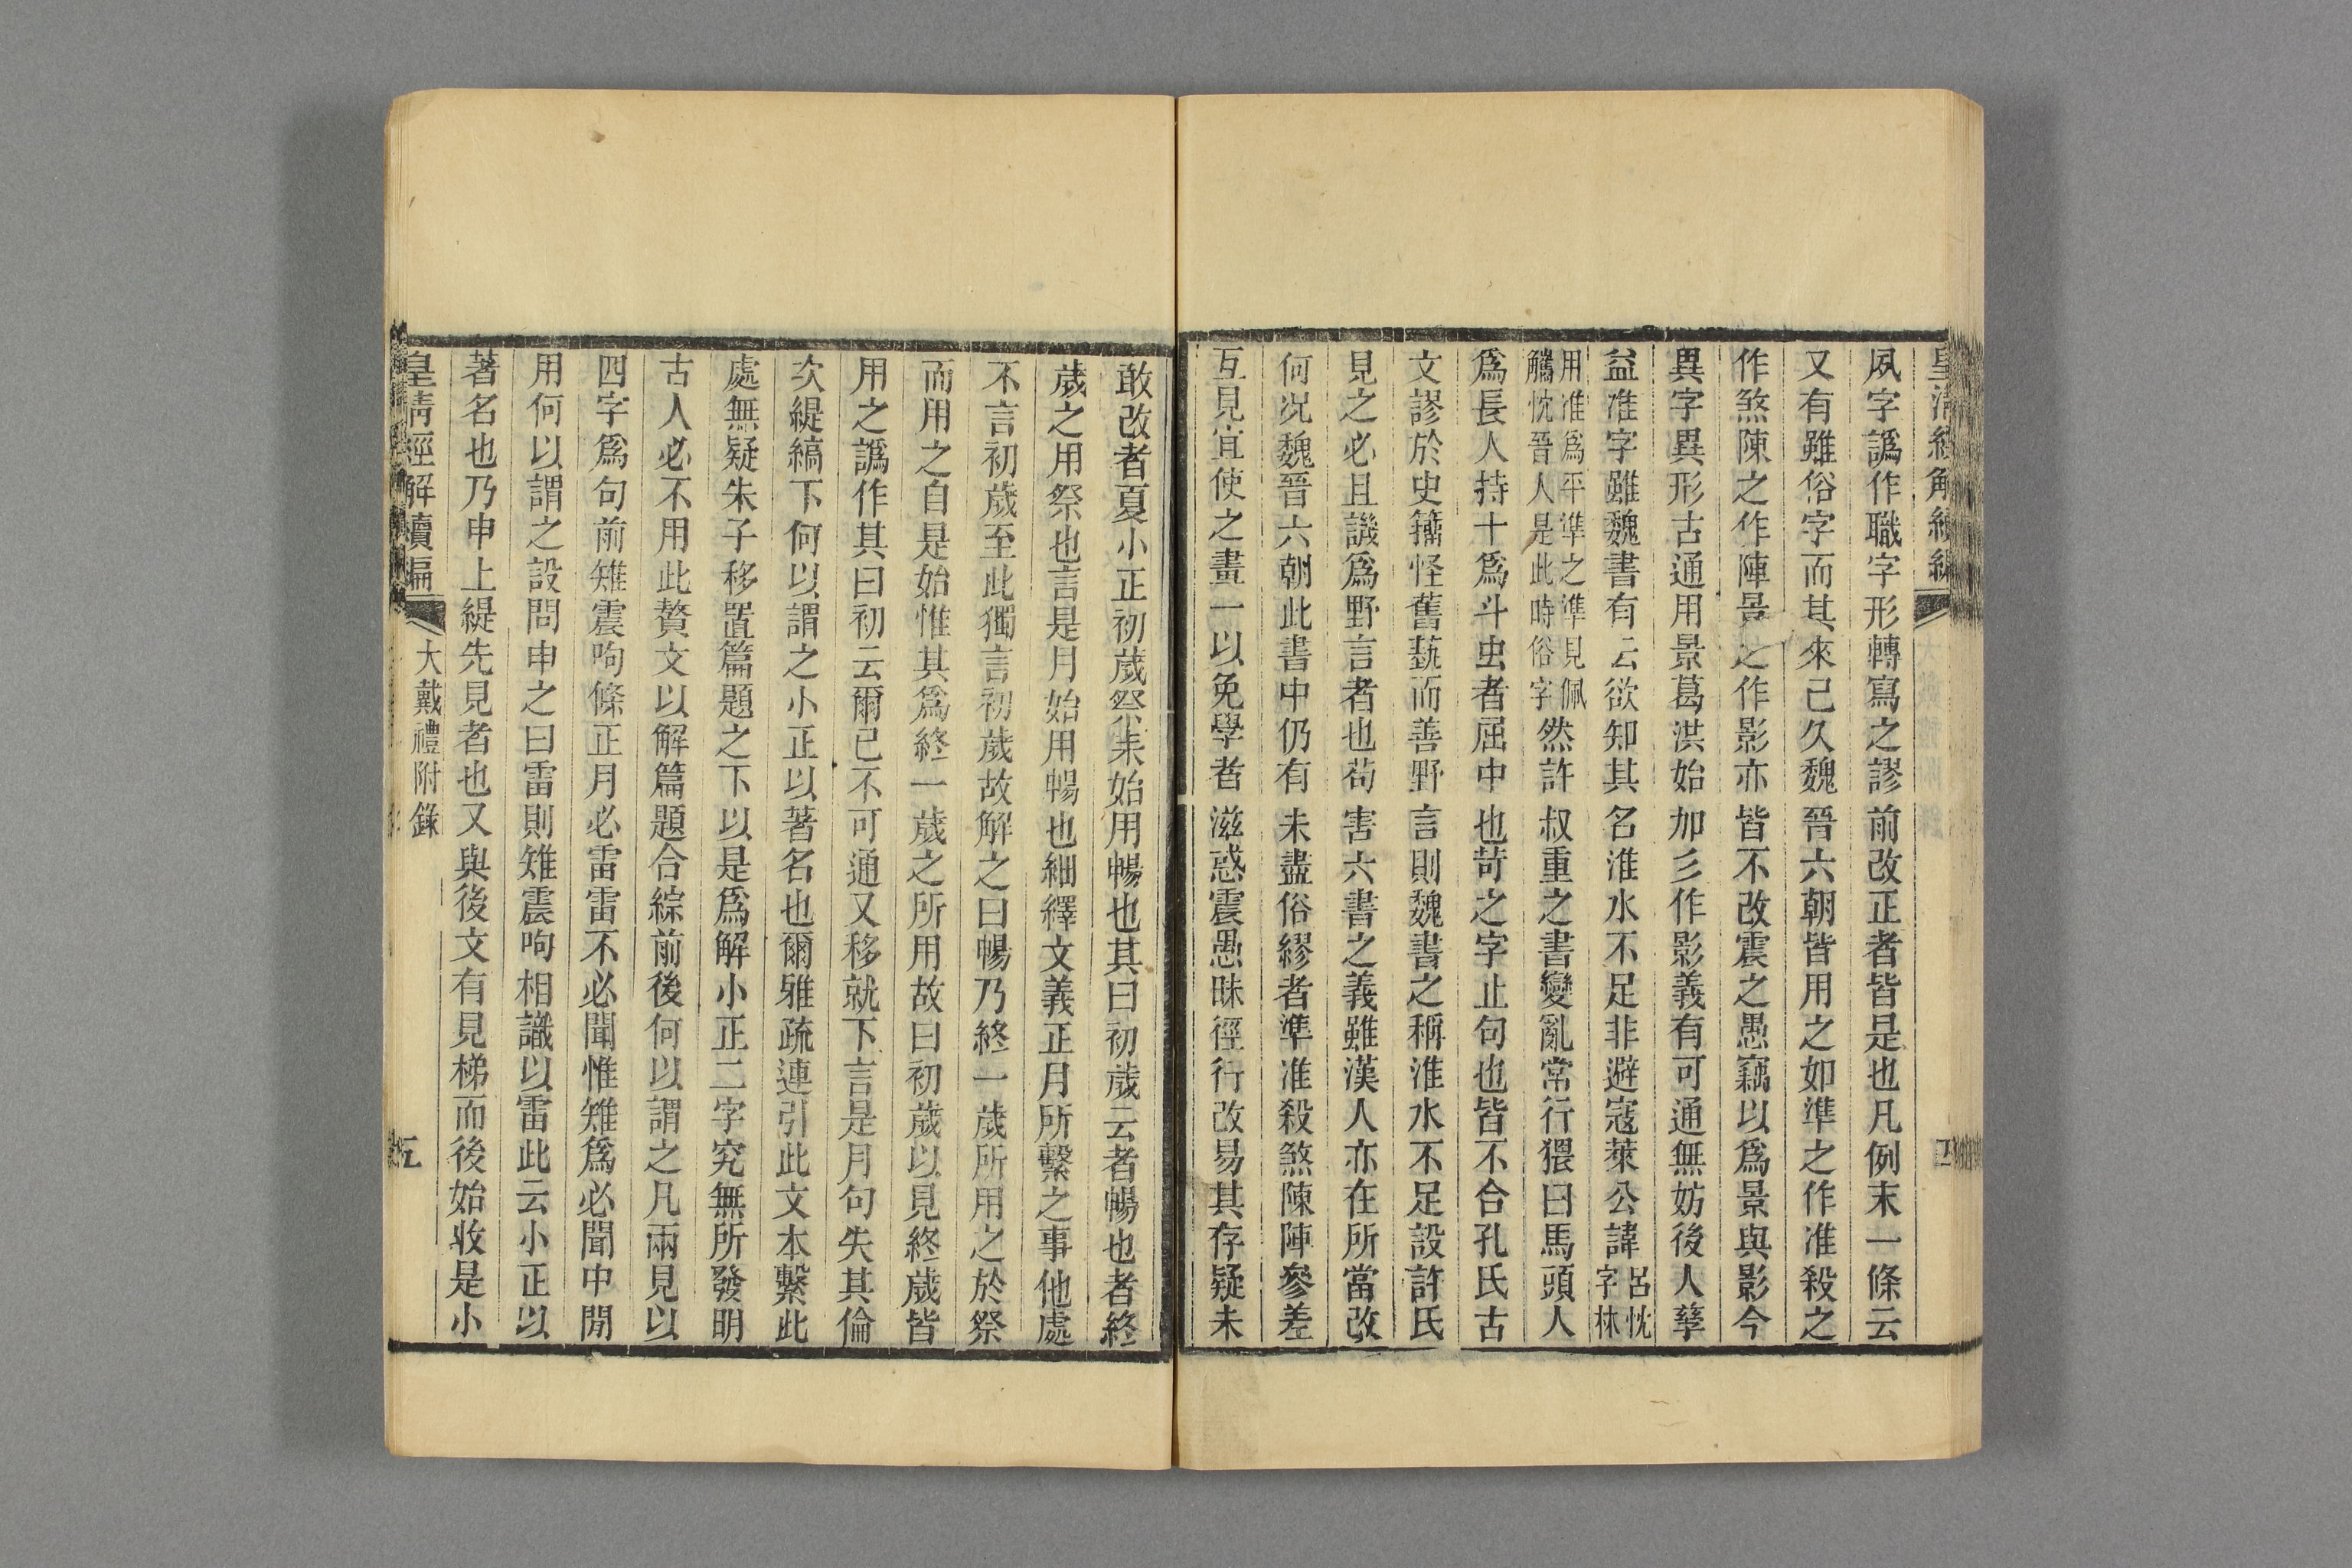 皇清經解續編
四
夙字譌作職字形轉寫之謬前改正者皆是也凡例末一條云
又有雖俗字而其來已久魏晉六朝皆用之如準之作准殺之
作煞陳之作陣景之作影亦皆不改震之愚竊以爲景與影今
異字異形古通用景葛洪始加彡作影義有可通無妨後人孳
益准字雖魏書有云欲知其名淮水不足非避寇萊公諱呂忱字林
用准爲平準之準見佩觿忱晉人是此時俗字然許叔重之書變亂常行猥曰馬頭人
爲長人持十爲斗虫者屈中也苛之字止句也皆不合孔氏古
文謬於史籀怪舊埶而善野言則魏書之稱淮水不足設許氏
見之必且譏爲野言者也苟害六書之義雖漢人亦在所當改
何况魏晉六朝此書中仍有未盡俗繆者準准殺煞陳陣參差
互見宜使之畫一以免學者滋惑震愚昧徑行改易其存疑未
敢改者夏小正初歲祭耒始用暢也其曰初歲云者暢也者終
歲之用祭也言是月始用暢也細繹文義正月所繫之事他處
不言初歲至此獨言初歲故解之曰暢乃終一歲所用之於祭
而用之自是始惟其爲終一歲之所用故曰初歲以見終歲皆
用之譌作其曰初云爾已不可通又移就下言是月句失其倫
次緹縞下何以謂之小正以著名也爾雅疏連引此文本繫此
處無疑朱子移置篇題之下以是爲解小正二字究無所發明
古人必不用此贅文以解篇題合綜前後何以謂之凡兩見以
四字爲句前雉震呴條正月必雷雷不必聞惟雉爲必聞中閒
用何以謂之設問申之曰雷則雉震呴相識以雷此云小正以
著名也乃申上緹先見者也又與後文有見梯而後始收是小
皇清經解續編
大戴禮附錄
五